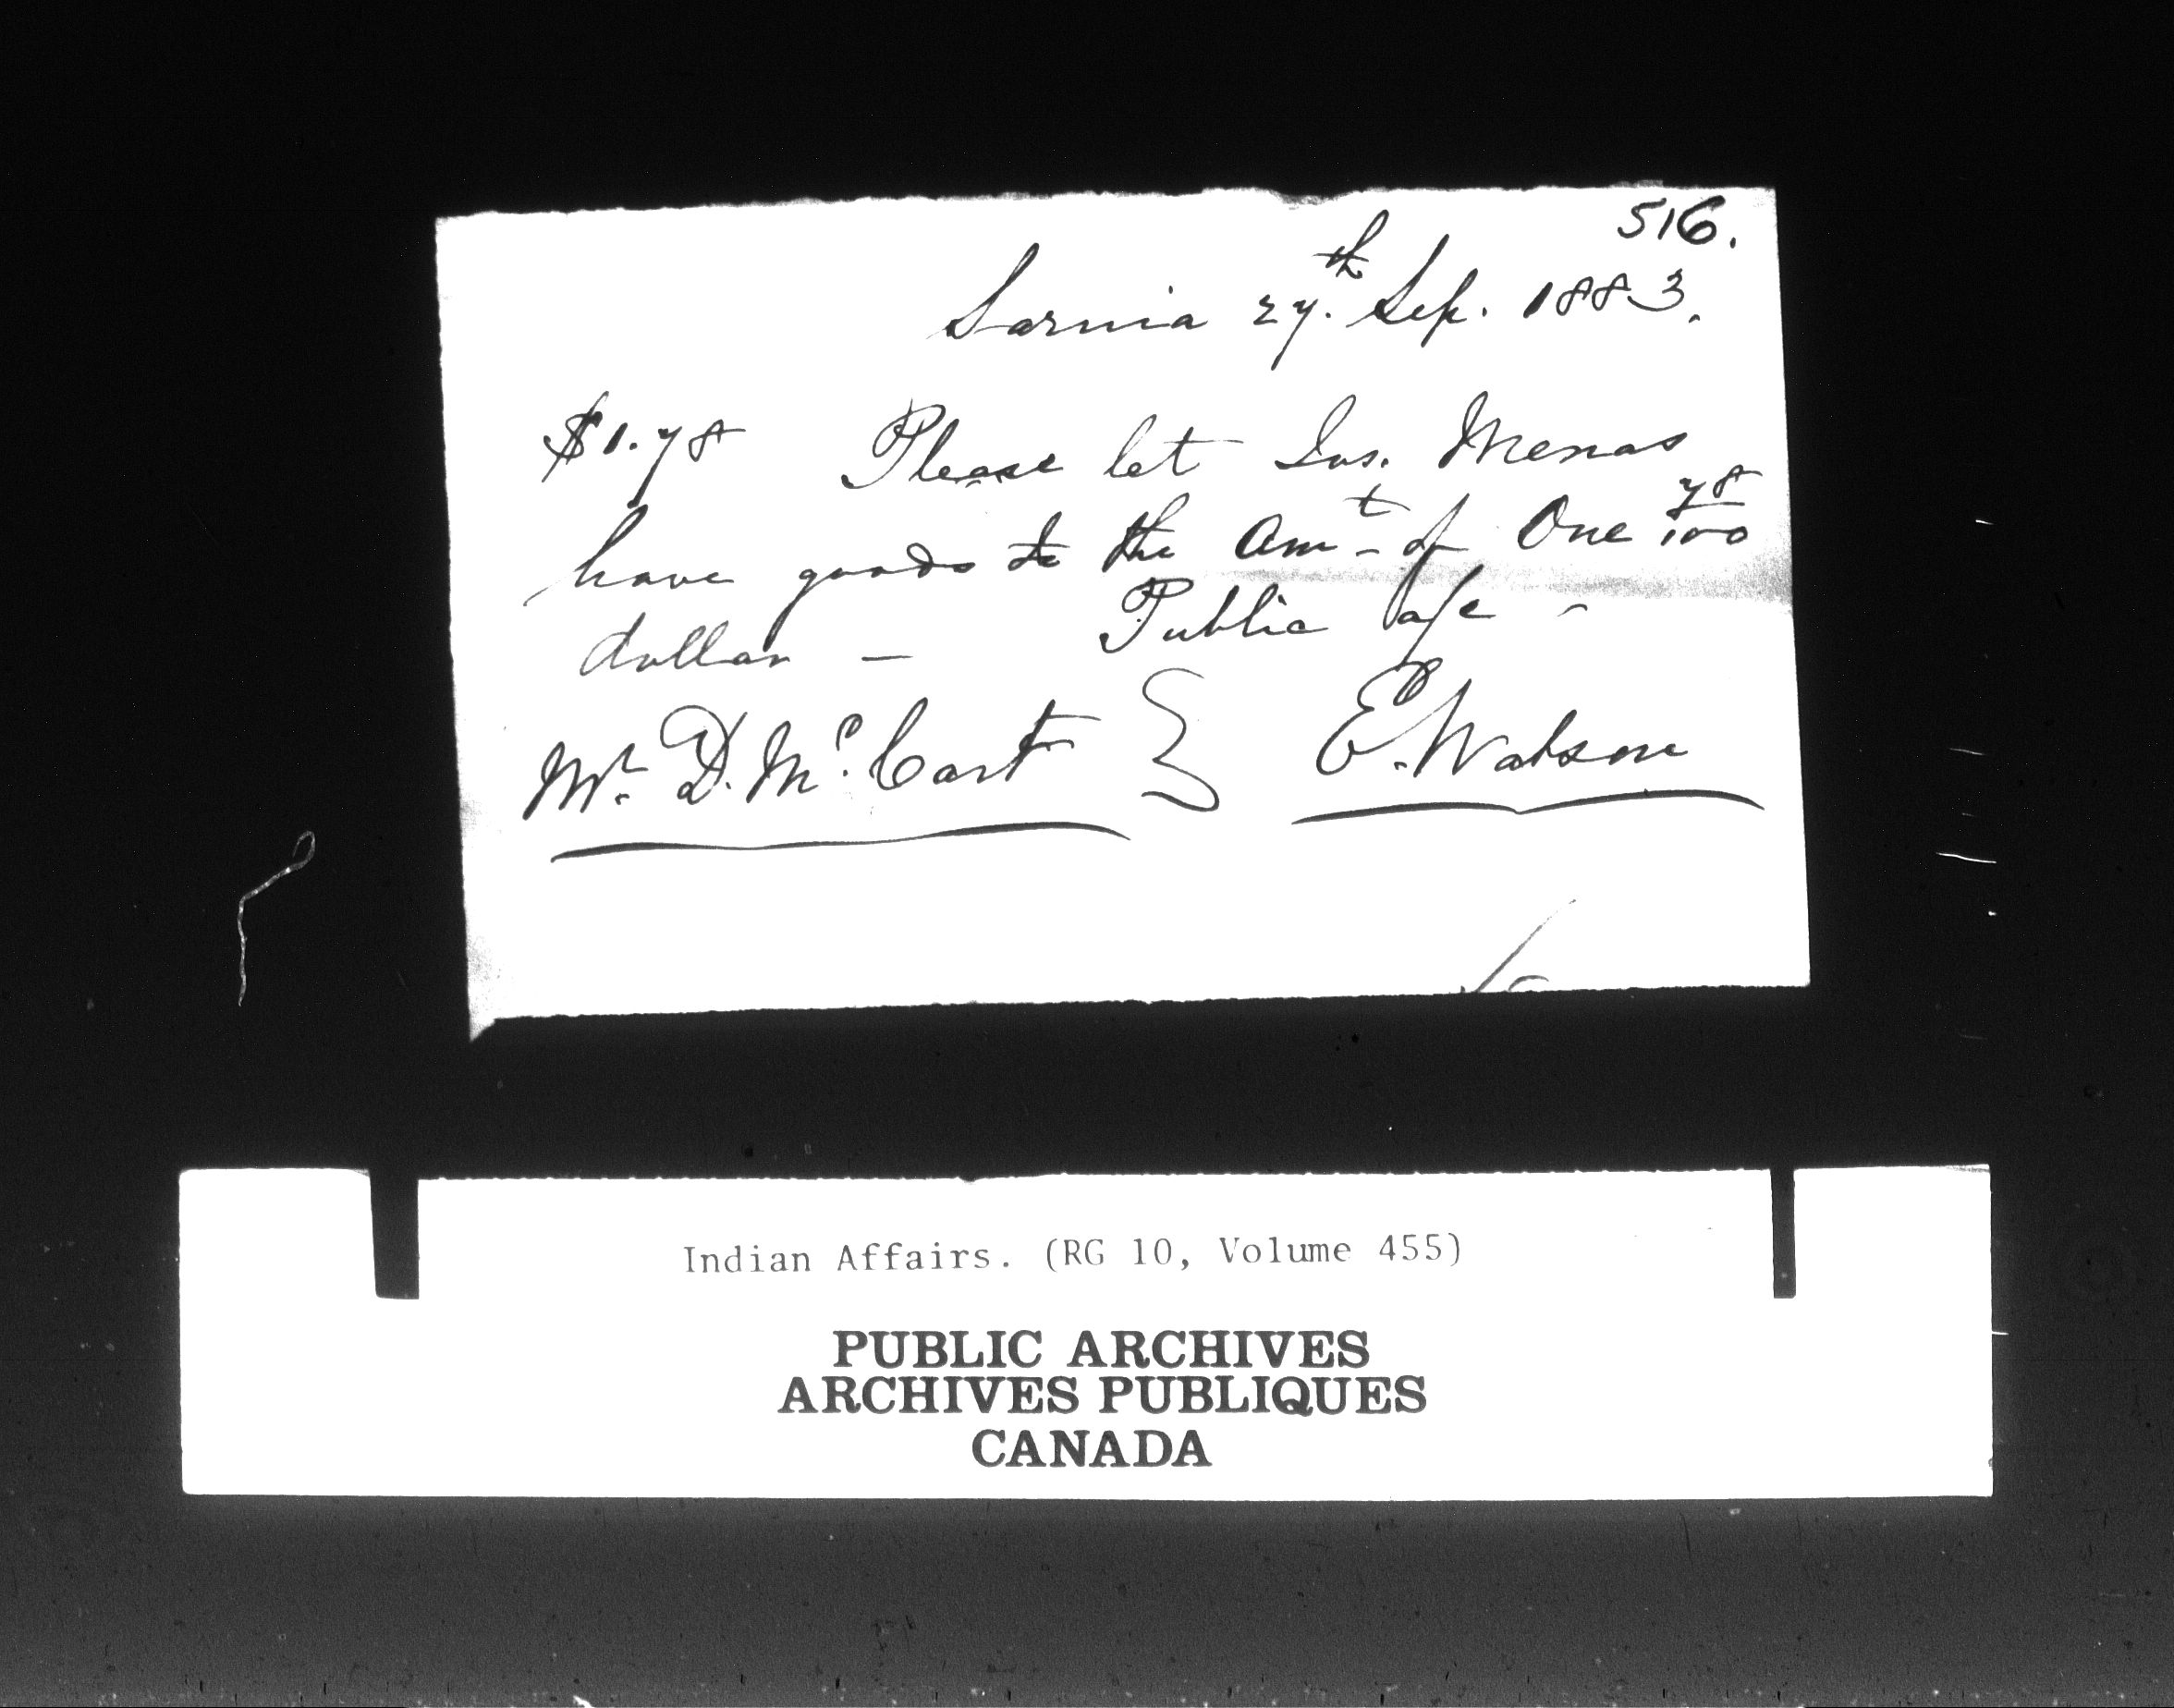 516.
Sarnia 27.th Sep. 1883.
$1.78 Please let Jas. Menas
have goods to the Amt of One 78/100
dollar — Public a/c -
Mr. D. McCart } E. Watson
Indian Affairs. (RG 10, Volume 455)
PUBLIC ARCHIVES
ARCHIVES PUBLIQUES
CANADA